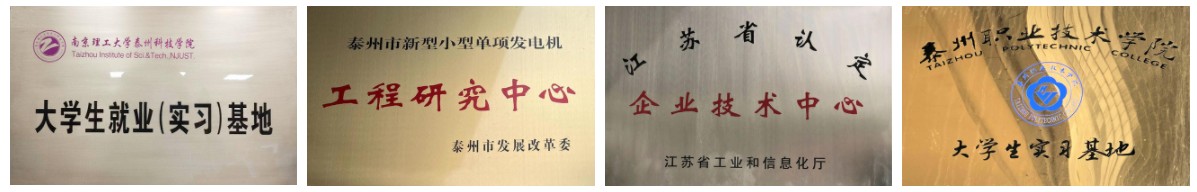 南京理工大学泰州科技学院
Taizhou Institute of Sci.&Tech.,NJUST
大学生就业(实习)基地
泰州市新型小型单项发电机
工程研究中心
泰州市发展改革委
江苏省认定
企业技术中心
江苏省工业和信息化厅
泰州职业技术学院
TAIZHOU POLYTECHNIC COLLEGE
大学生实习基地